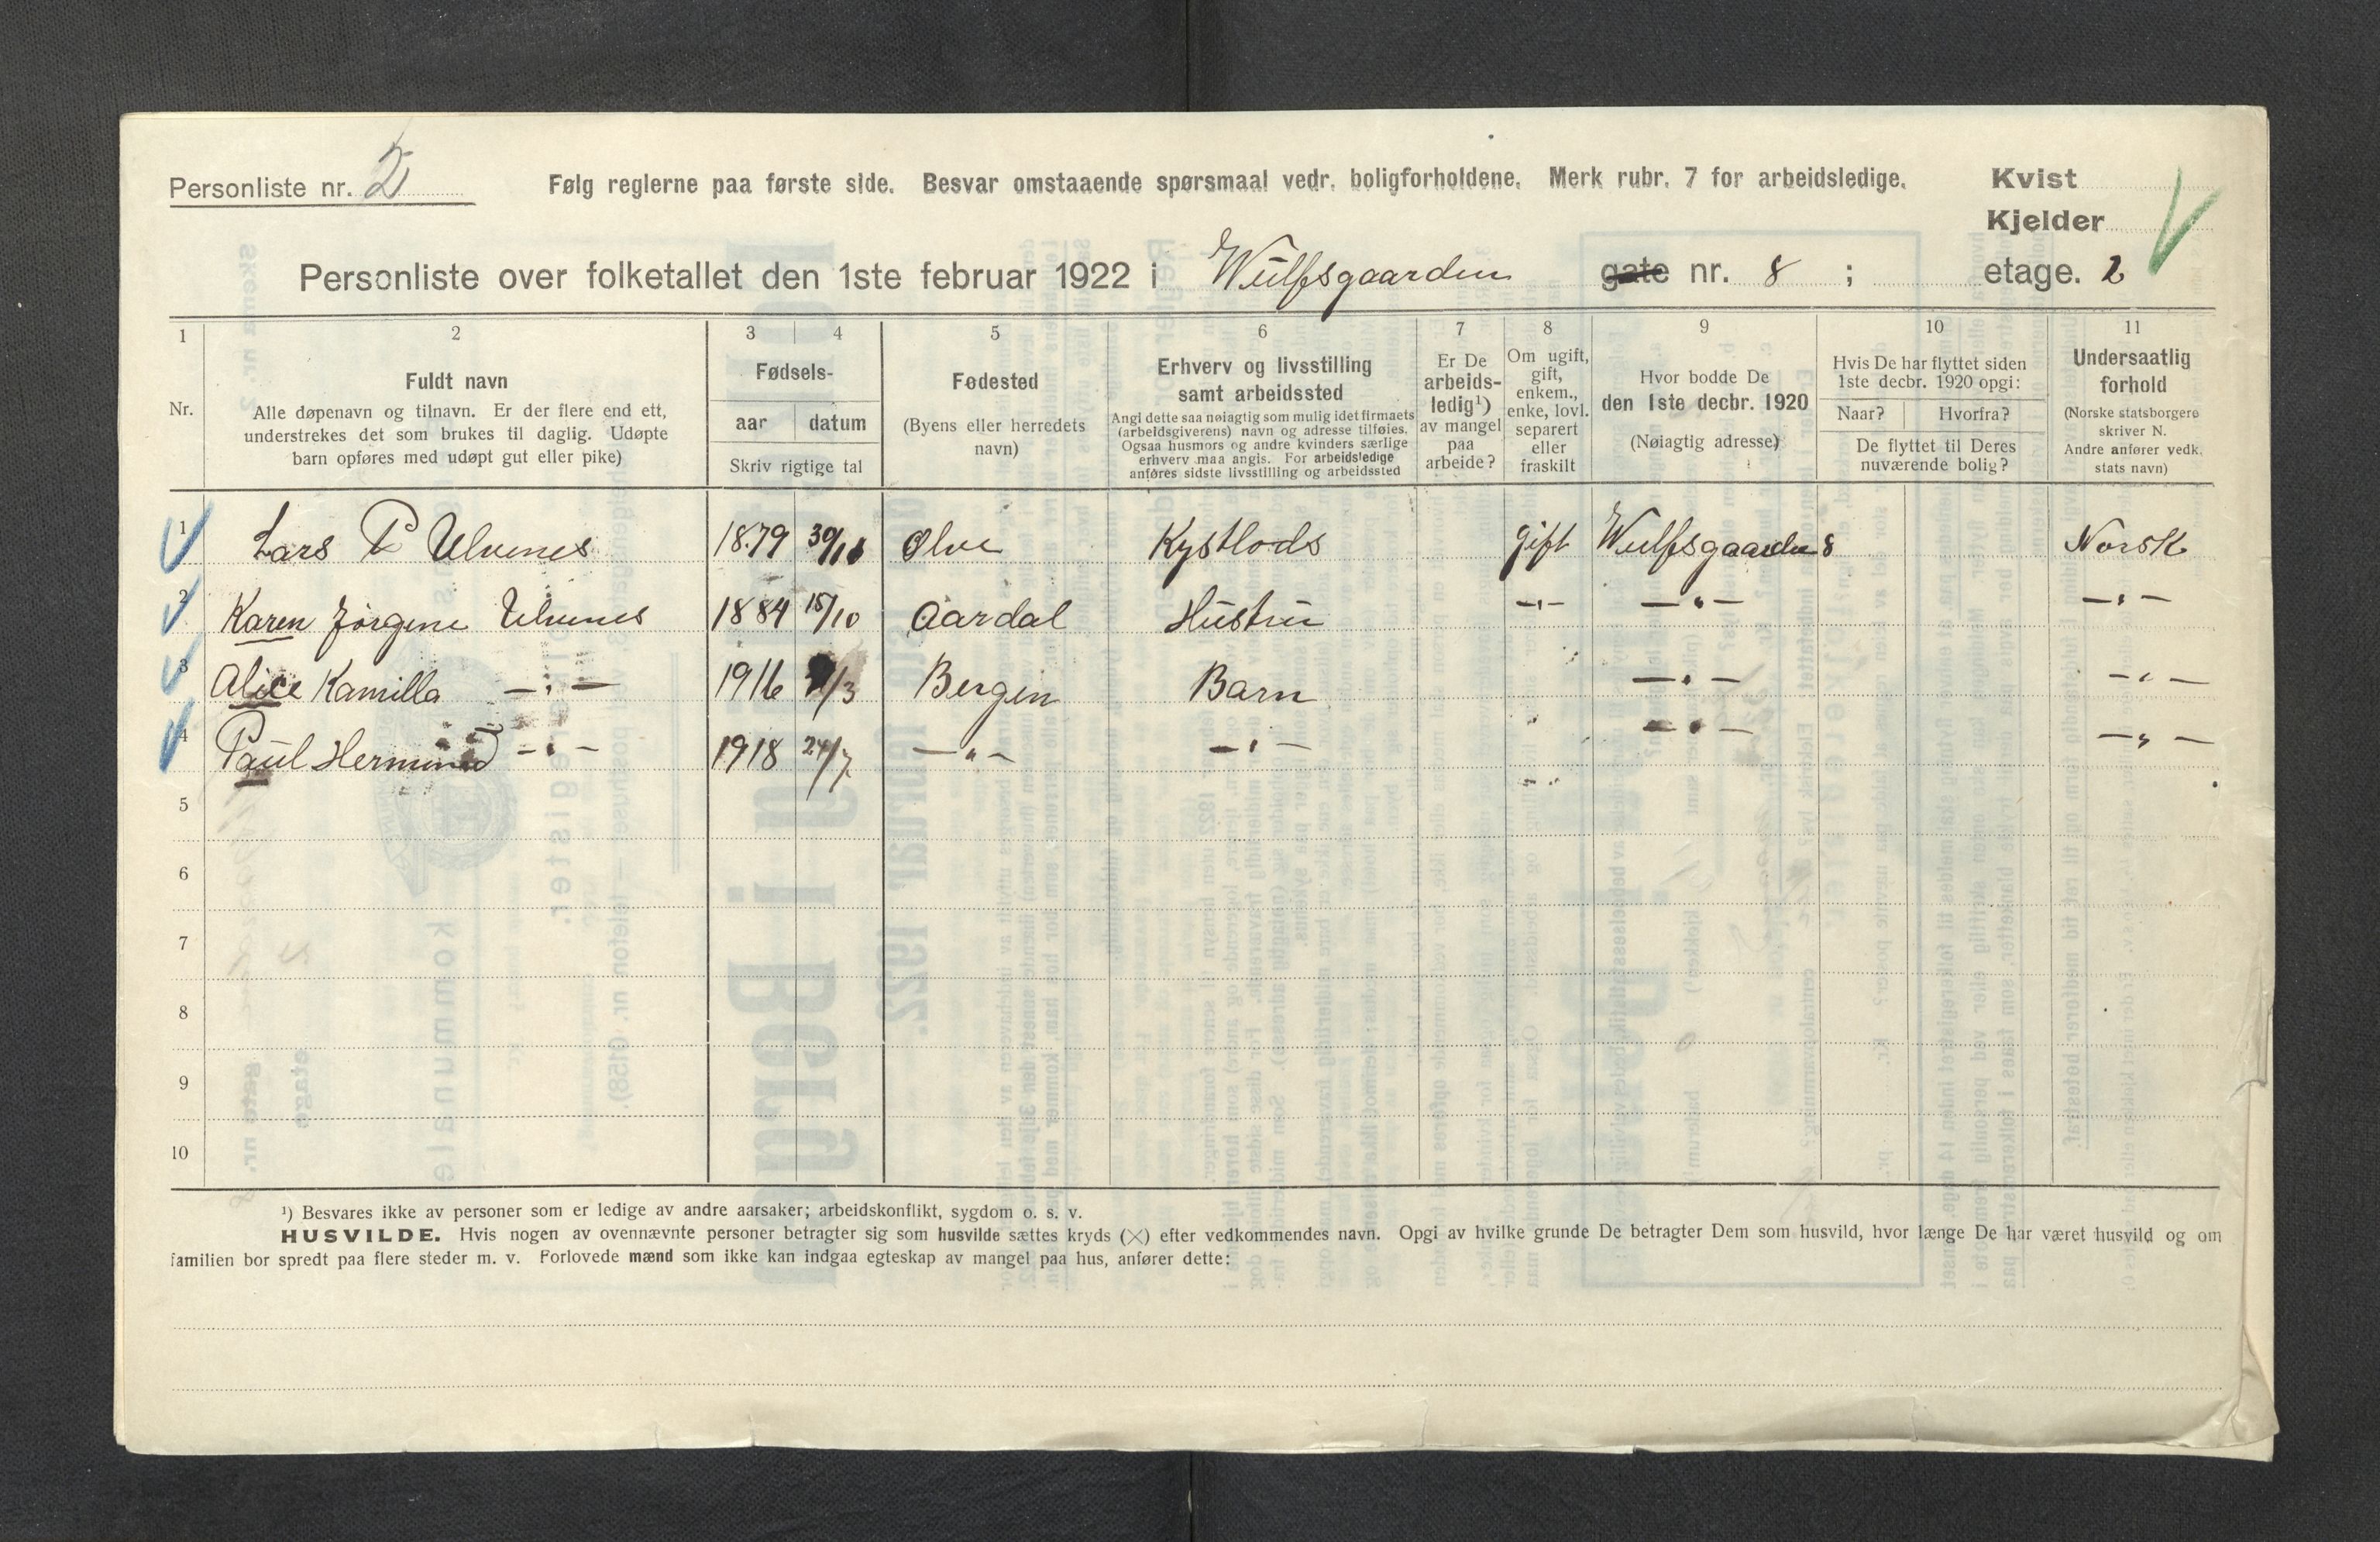 Personliste nr. 2
Følg reglerne paa første side. Besvar omstaaende spørsmaal vedr. boligforholdene. Merk rubr. 7 for arbeidsledige.
Kvist
Kjelder
Personliste over folketallet den 1ste februar 1922 i Wulfsgaarden gate nr. 8 ; etage. 2
1 2 3 4 5 6 7 8 9 10 11
Nr.
Fuldt navn
Alle døpenavn og tilnavn. Er der flere end ett,
understrekes det som brukes til daglig. Udøpte
barn opføres med udøpt gut eller pike)
Fødsels-
aar datum
Skriv rigtige tal
Fødested
(Byens eller herredets
navn)
Erhverv og livsstilling
samt arbeidssted
Angi dette saa nøiagtig som mulig idet firmaets
(arbeidsgiverens) navn og adresse tilføies.
Ogsaa husmors og andre kvinders særlige
erhverv maa angis. For arbeidsledige
anføres sidste livsstilling og arbeidssted
Er De
arbeids-
ledig¹)
av mangel
paa
arbeide?
Om ugift,
gift,
enkem.,
enke, lovl.
separert
eller
fraskilt
Hvor bodde De
den 1ste decbr. 1920
(Nøiagtig adresse)
Hvis De har flyttet siden
1ste decbr. 1920 opgi:
Naar? Hvorfra?
De flyttet til Deres
nuværende bolig?
Undersaatlig
forhold
(Norske statsborgere
skriver N.
Andre anfører vedk.
stats navn)
1 Lars P Ulvenes 1879 Ølve Kystlods gift Wulfsgaarden 8 Norsk
2 Karen Jørgine Ulvenes 1884 15/10 Aardal Hustru -"- -"- -"-
3 Alice Kamilla -"- 1916 /3 Bergen Barn -"- -"-
4 Paul Hermund -"- 1918 24/7 -"- -"- -"- -"-
5
6
7
8
9
10
¹) Besvares ikke av personer som er ledige av andre aarsaker; arbeidskonflikt, sygdom o. s. v.
HUSVILDE. Hvis nogen av ovennævnte personer betragter sig som husvilde sættes kryds (×) efter vedkommendes navn. Opgi av hvilke grunde De betragter Dem som husvild, hvor længe De har været husvild og om
familien bor spredt paa flere steder m. v. Forlovede mænd som ikke kan indgaa egteskap av mangel paa hus, anfører dette: